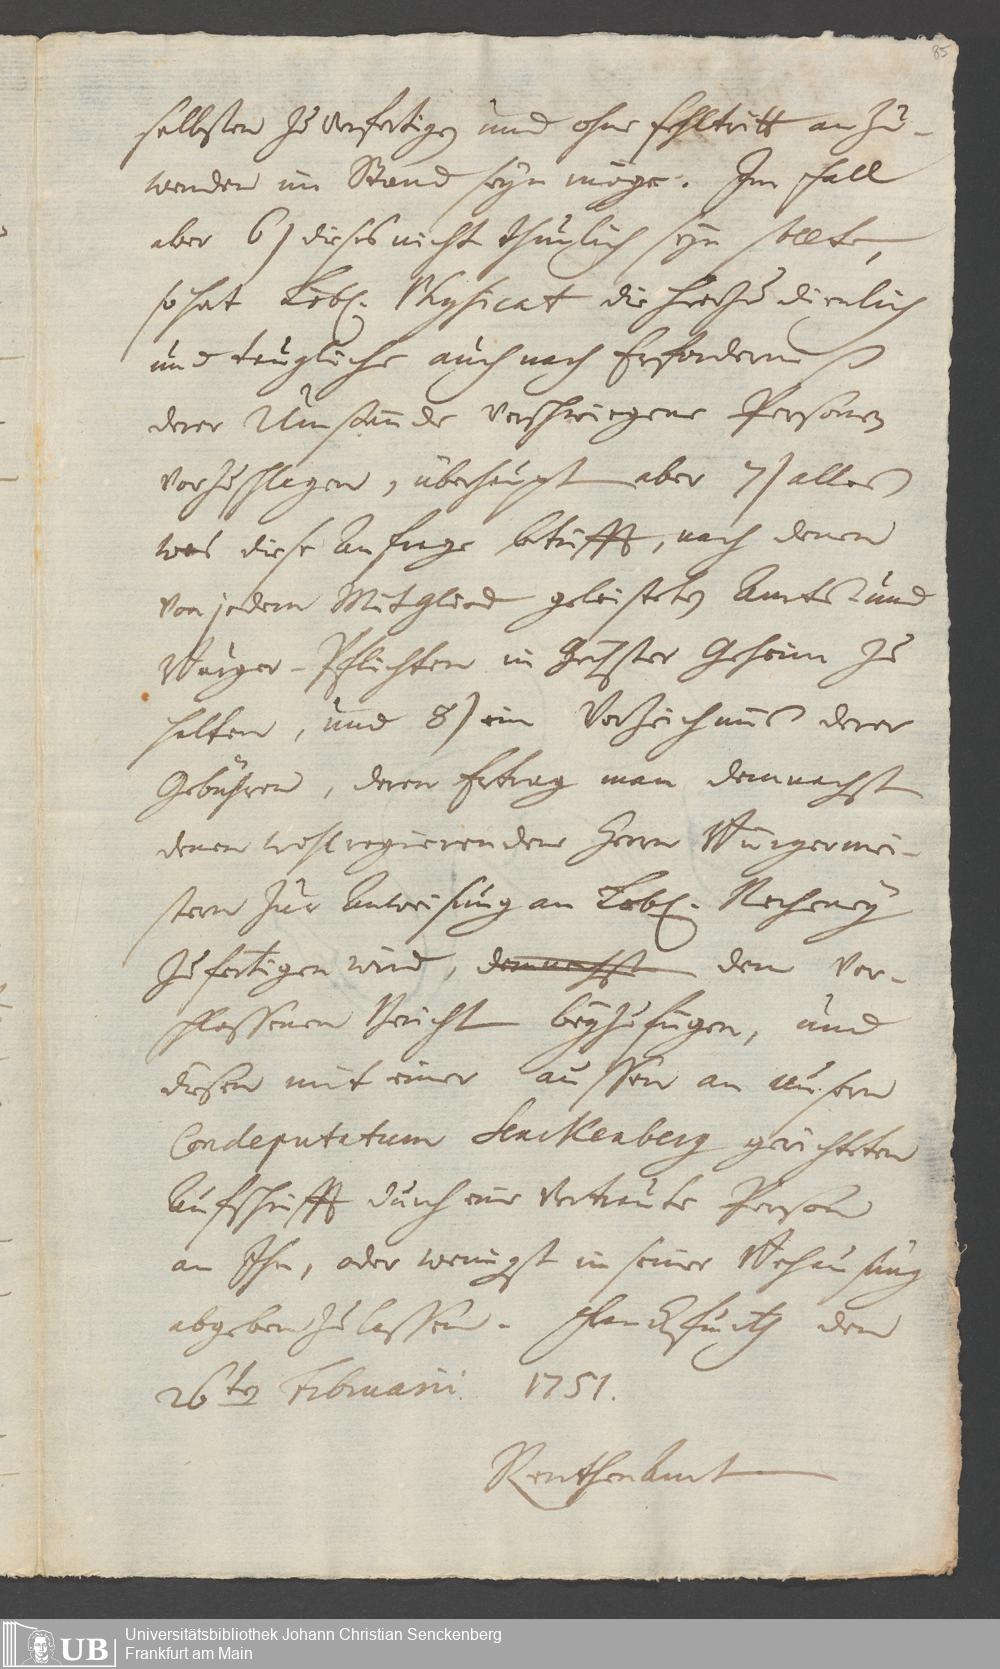 85
selbsten zu verfertigen und ohne fehltritt anzu-
wenden im Stand seyn möge. Im fall
aber 6) dieses nicht thunlich seyn sollte,
so hat Löbl. Physicat die hierzu dienlich
und taugliche auch nach Erfordernuß
derer Umstände verschwiegene Personen
vorzuschlagen, überhaupt aber 7) alles
was diese Anfrage betrifft, nach denen
von jedem Mitglied geleisteten Amts und
Bürger-Pflichten in Geheim zu
halten, und 8) ein Verzeichnus derer
Gebühren, deren Ertrag man demnachst
denen wohlregierenden Herrn Bürgermei-
stern zur Anweisung an Löbl. Recheney
zufertigen wird, demnachst dem ver-
schlossenen Bericht beyzufügen, und
diesen mit einer aussen an unsern
Condeputatum Senckenberg gerichteten
Aufschrifft durch eine vertraute Person
an Ihn, oder wenigst in seiner Behausung
abgeben zu lassen. Franckfurth den
26ten Februarii 1751.
RentkenAmt
UB
Universitätsbibliothek Johann Christian Senckenberg
Frankfurt am Main